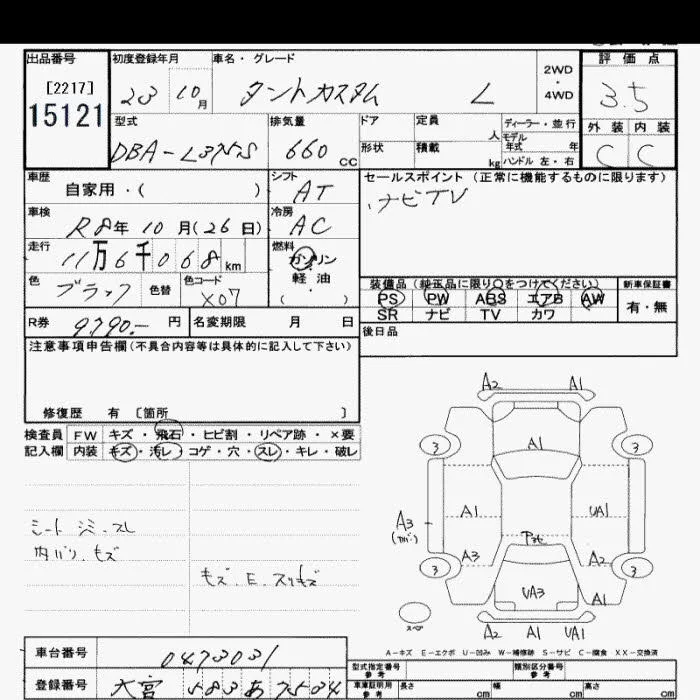 出品番号 初度登録年月 車名・グレード 2WD・4WD 評価点
[2217]
15121
23 10月 タントカスタム L 3.5
外装 内装
C C
型式 排気量 ドア 定員 人 ディーラー・並行
モデル年式 年
DBA-L375S 660 CC 形状 積載 kg ハンドル 左・右
車歴 シフト セールスポイント(正常に機能するものに限ります)
自家用・( ) AT ナビTV
車検 冷房
R8年10月(26日) AC
走行 燃料
11万6千068km ガソリン・軽油( )
色 色替 色コード
ブラック X07
装備品(純正品に限り○をつけてください) 新車保証書
PS PW ABS エアB AW 有・無
SR ナビ TV カワ
R券 9790.- 円 名変期限 月 日
後日品
注意事項申告欄(不具合内容等は具体的に記入して下さい)
修復歴 有 〔箇所 〕
検査員 FW キズ・飛石・ヒビ割・リペア跡・×要
記入欄 内装 キズ・汚レ・コゲ・穴・スレ・キレ・破レ
シート シミ・スレ
内バリ キズ
キズ・E・スリキズ
A2 A1
3 A1 3
A1 UA1
A3
A3 A2
3 UA3 3
A1
スペア
A2 A1 UA1
A-キズ E-エクボ U-凹み W-補修跡 S-サビ C-腐食 XX-交換済
車台番号 0473031
型式指定番号 参考 類別区分番号 参考
登録番号 大宮 583 あ 7504
車庫証明用 参考 長さ cm 幅 cm 高さ cm